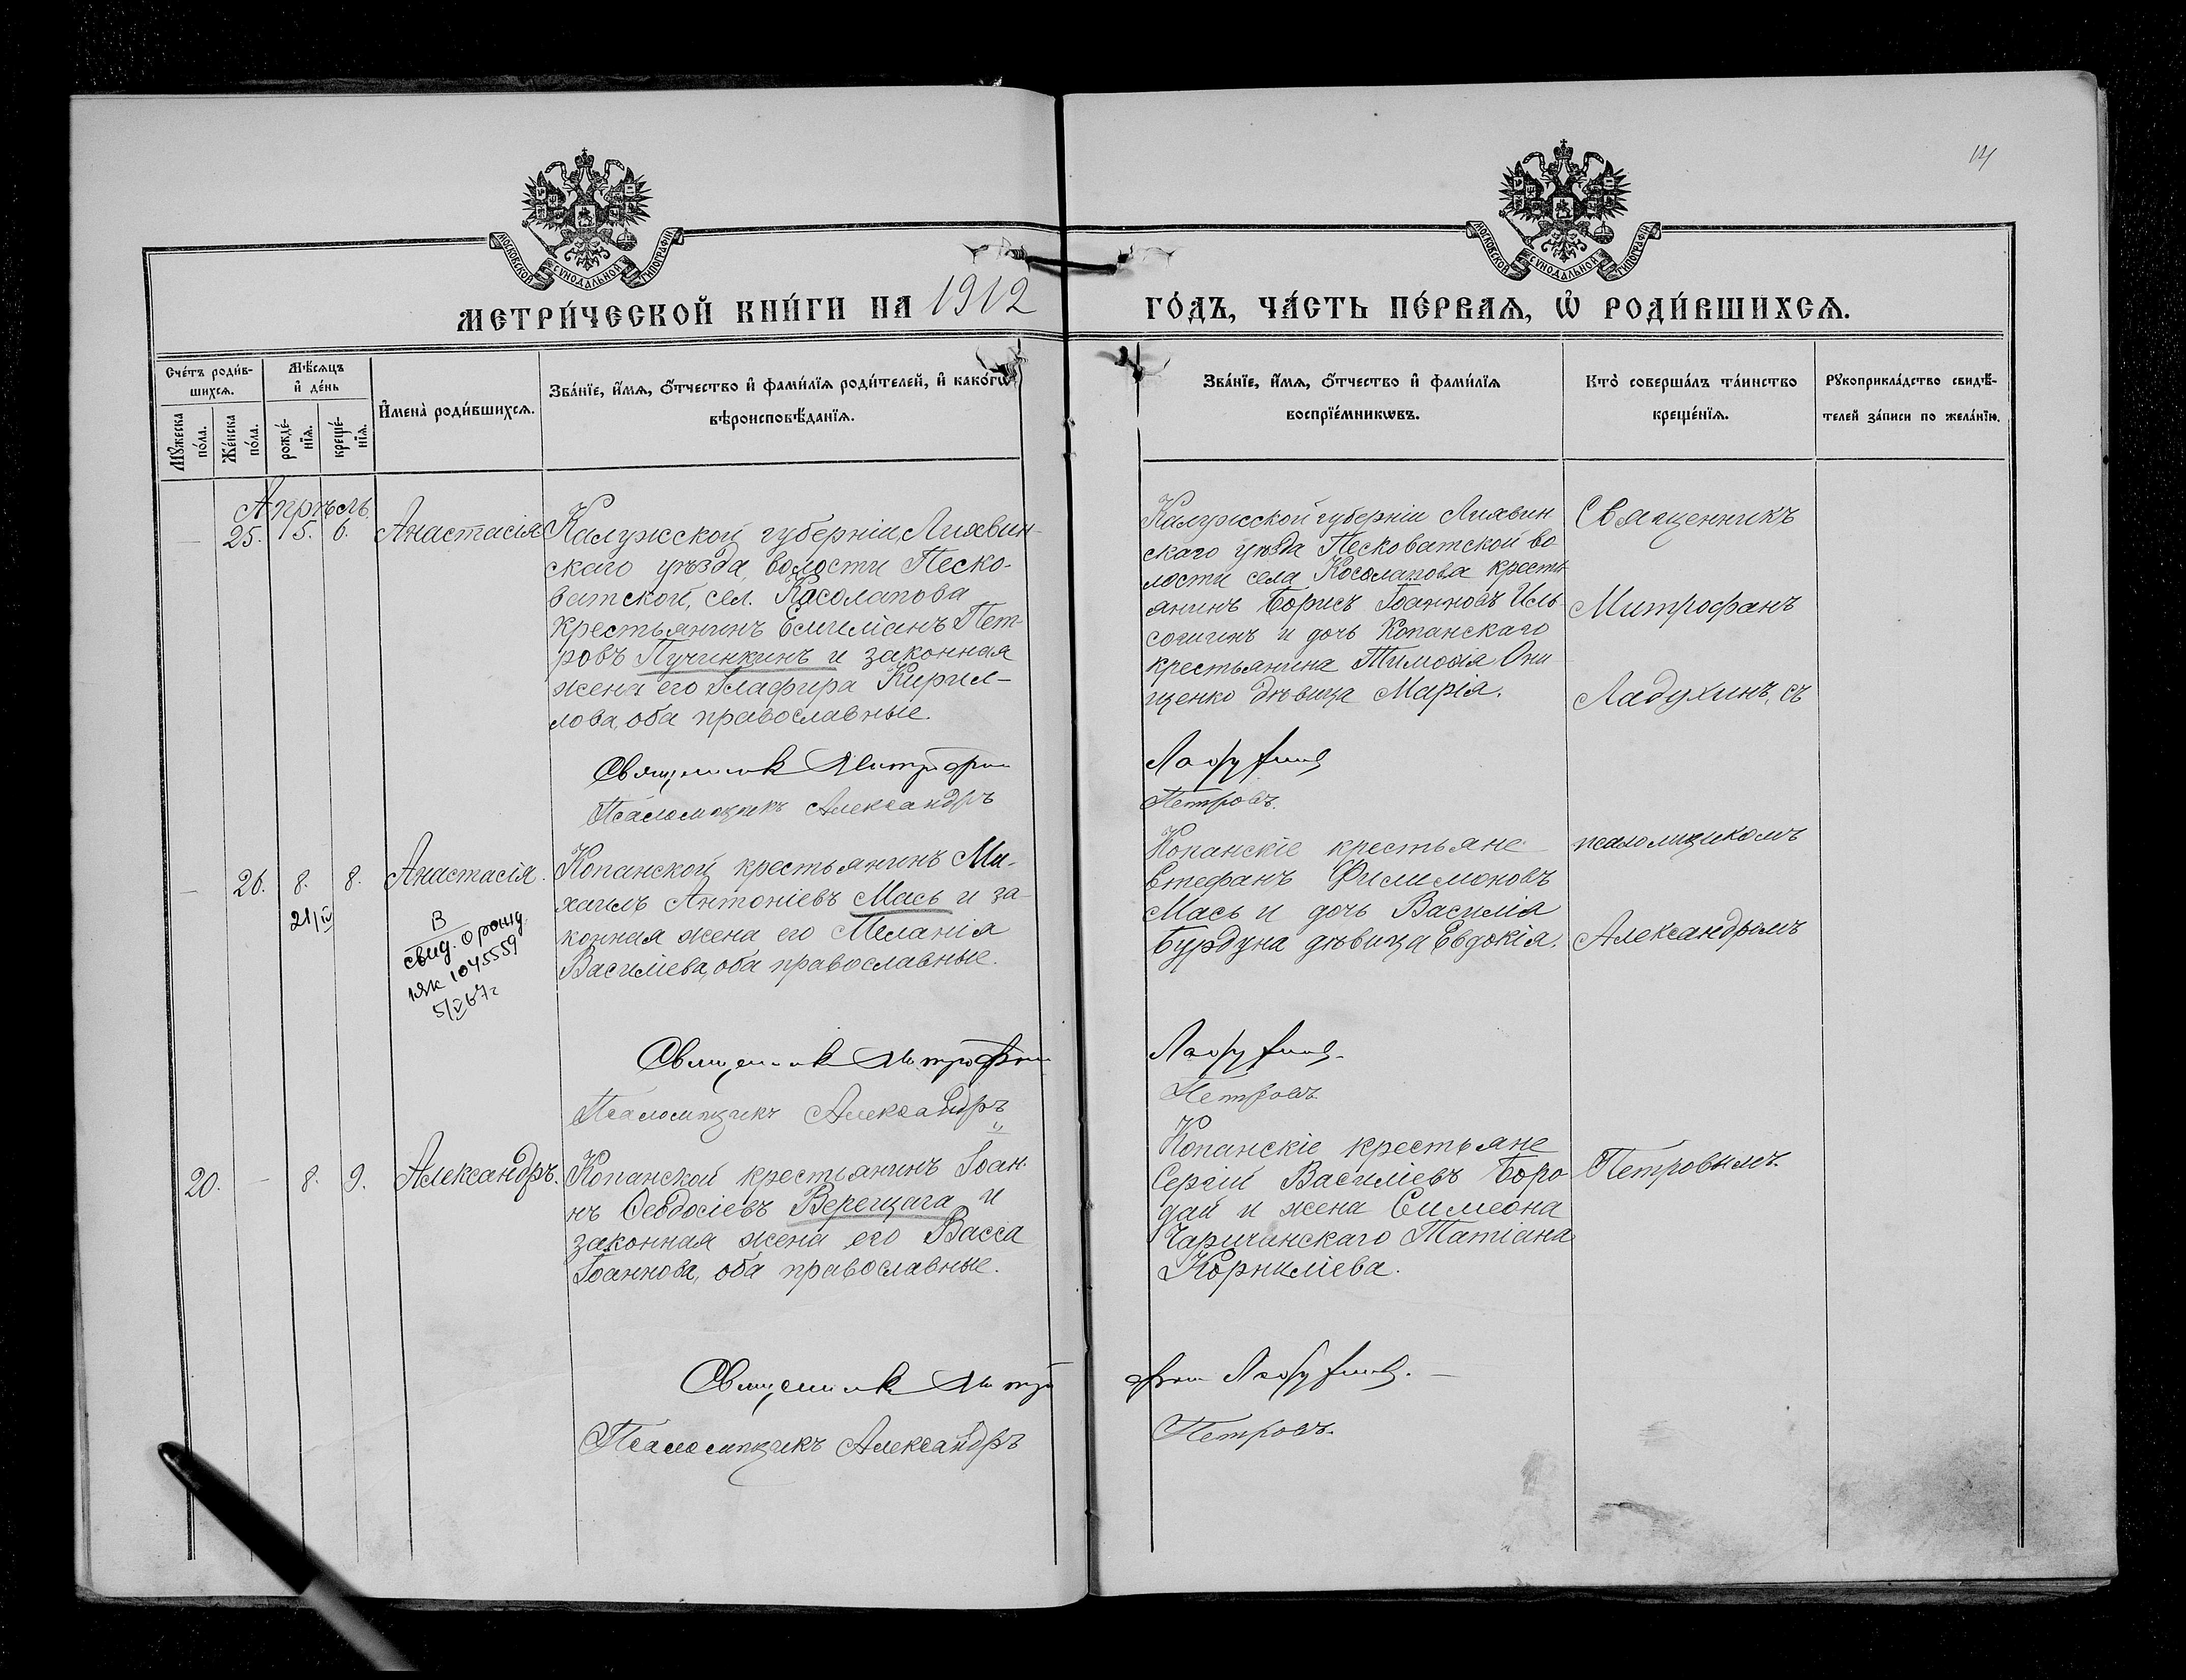 14
МОСКОВСКОЙ СѴНОДАЛЬНОЙ ТИПОГРАФІИ
МОСКОВСКОЙ СѴНОДАЛЬНОЙ ТИПОГРАФІИ
МЕТРИ́ЧЕСКОЙ КНИ́ГИ НА 1912
ГО́ДЪ, ЧА́СТЬ ПЕ́РВАѦ, Ѡ҆ РОДИ́ВШИХСѦ.
Сче́тъ роди́в-
шихсѧ.
Мꙋ́жеска
по́ла.
Же́нска
по́ла.
Мѣ́сѧцъ
и҆ де́нь
рожде́-
нїѧ.
креще́-
нїѧ.
И҆мена̀ роди́вшихсѧ.
Зва́нїе, и҆́мѧ, ѻ҆́тчество и҆ фами́лїѧ роди́телей, и҆ како́гѡ
вѣроисповѣ́данїѧ.
Зва́нїе, и҆́мѧ, ѻ҆́тчество и҆ фами́лїѧ
воспрїе́мникѡвъ.
Кто̀ соверша́лъ та́инство
креще́нїѧ.
Рꙋкоприкла́дство свидѣ́-
телей за́писи по жела́нїю.
Апрѣль.
— 25. 5. 6. Анастасія
Калужской губерніи, Лихвин-
скаго уѣзда, волости Песко-
ватской, сел. Косолапова
крестьянинъ Емиліанъ Пет
ровъ Пучинкинъ и законная
жена его Глафира Кирил-
лова, оба православные.
Священникъ Митрофанъ
Псаломщикъ Александръ
Калужской губерніи Лихвин
скаго уѣзда Песковатской во
лости села Косолапова кресть
янинъ Борисъ Іоанновъ Иль
сочигинъ и дочь Копанскаго
крестьянина Тимоѳія Они
щенко дѣвица Марія.
Ладухинъ
Петровъ.
Священникъ
Митрофанъ
Ладухинъ, съ
псаломщикомъ
Александромъ
Петровымъ.
— 26. 8. 8. Анастасія.
21/IV
В
свид. о рожд.
1ЯК 1045559
5/V 67г
Копанской крестьянинъ Ми-
хаилъ Антоніевъ Мась и за-
конная жена его Меланія
Василіева, оба православные.
Священникъ Митрофанъ
Псаломщикъ Александръ
Копанскіе крестьяне
Стефанъ Филимоновъ
Мась и дочь Василія
Бурдуна дѣвица Евдокія.
Ладухинъ.
Петровъ
20. — 8. 9. Александръ.
Копанской крестьянинъ Іоан-
нъ Ѳеодосіевъ Верещага и
законная жена его Васса
Іоаннова, оба православные.
Священникъ Митро
Псаломщикъ Александръ
Копанскіе крестьяне
Сергій Василіевъ Боро
дай и жена Симеона
Чаричанскаго Татіана
Корниліева.
фанъ Ладухинъ. —
Петровъ.